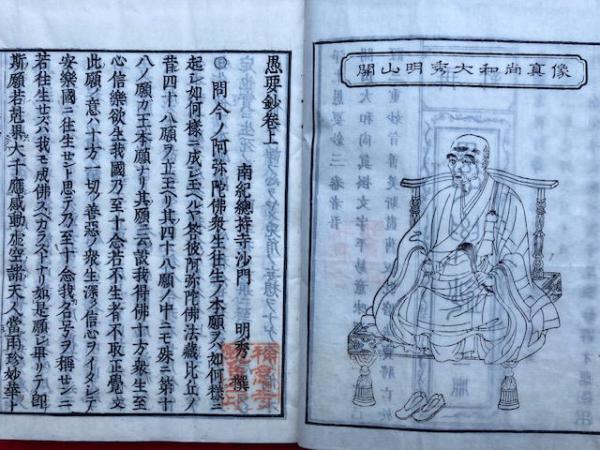 開山明秀大和尚真像
愚要鈔卷上
南紀總持寺沙門 明秀 撰
問今ノ阿弥陀佛衆生往生ノ本願ヲハ如何樣ニ
起シ如何樣ニ成シ玉ヘルヤ答彼阿弥陀佛法藏比丘ノ
昔四十八願ヲ立玉ヘリ其四十八願ノ中ニモ殊ニ第十
八ノ願カ王本願ナリ其願ニ云設我得佛十方衆生至
心信樂欲生我國乃至十念若不生者不取正覺文
此願ノ意ハ十方一切ノ善惡ノ衆生深ク信心ヲイタシテ
安樂國ニ往生セント思テ乃至十念我名号ヲ稱センニ
若往生セスハ我モ成佛スヘカラストナリ如是願シ畢リテ即
斯願若剋果大千應感動虚空諸天人當雨珍妙華ト